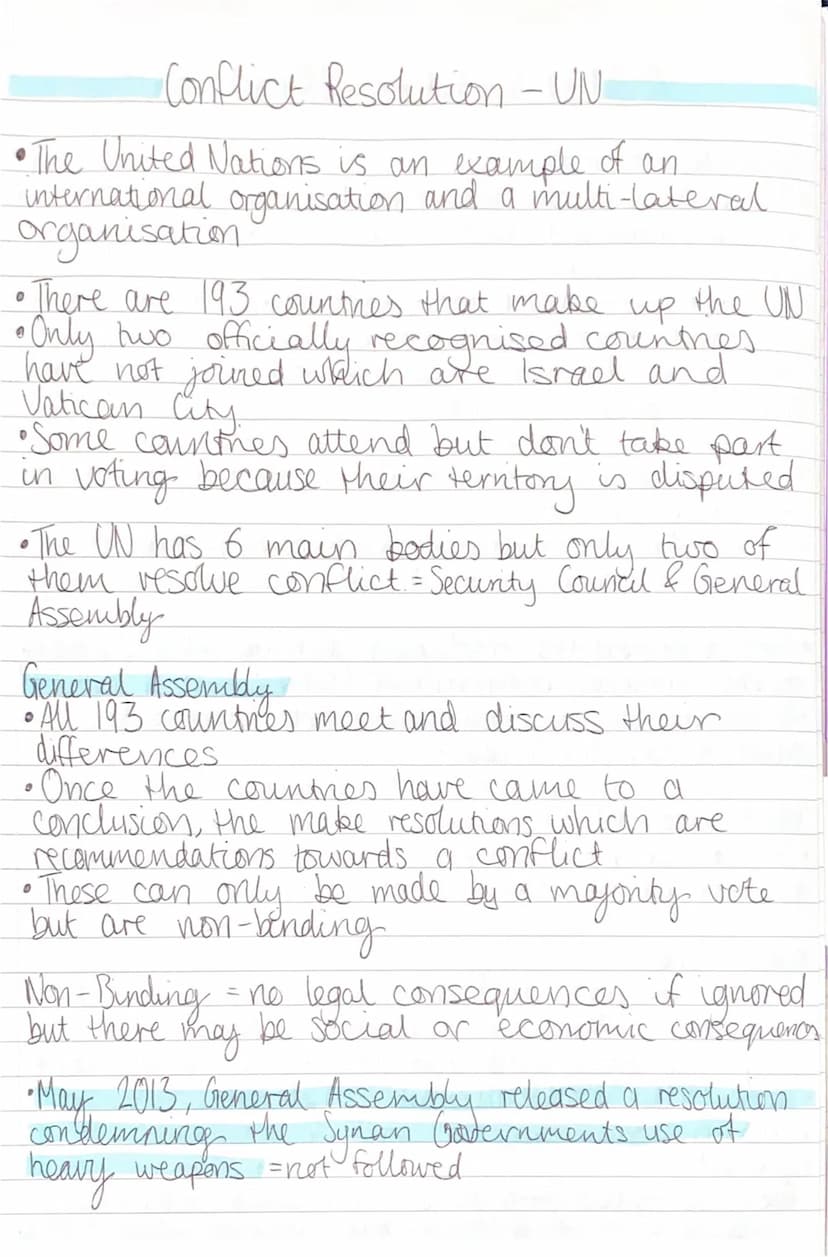 Conflict Resolution - UN
• The United Nations is an example of an
international organisation and a multi-lateral
organisation
• There are 193 countries that make up the UN
• Only two officially recognised countries
have not joined which are Israel and
Vatican City
• Some countries attend but don't take part
in voting because their territory is disputed
• The UN has 6 main bodies but only two of
them resolve conflict = Security Council & General
Assembly
General Assembly
• All 193 countries meet and discuss their
differences
• Once the countries have came to a
conclusion, the make resolutions which are
recommendations towards a conflict
• These can only be made by a majority vote
but are non-binding
Non-Binding = no legal consequences if ignored
but there may be social or economic consequences
• May 2013, General Assembly released a resolution
condemning the Syrian Governments use of
heavy weapons = not followed